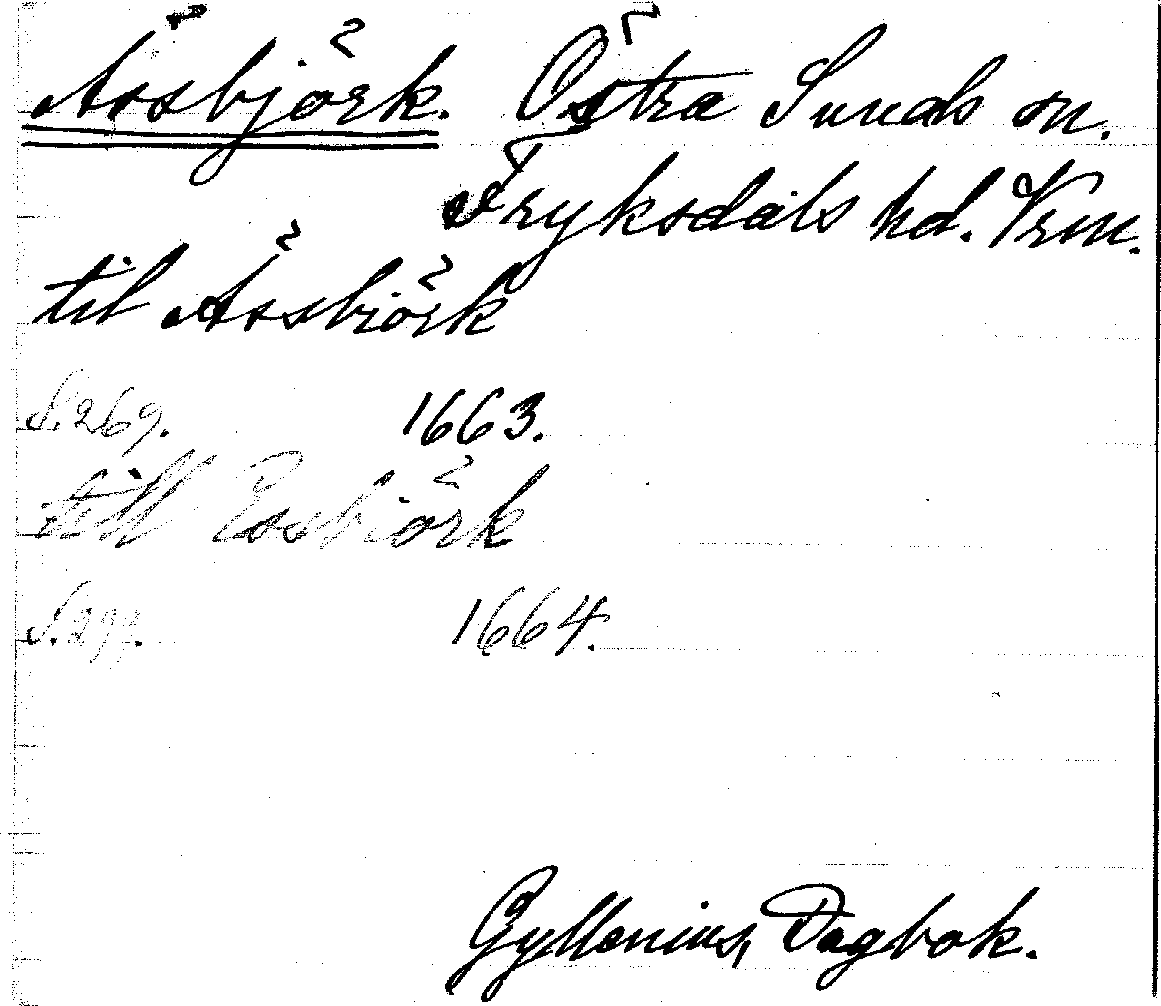 Ässbjörk. Östra Sunds sn.
Fryksdals hd. Vrm.
til Ässbiörk
S. 269. 1663.
till Essbiörk
S. 299. 1664.
Gyllenius, Dagbok.